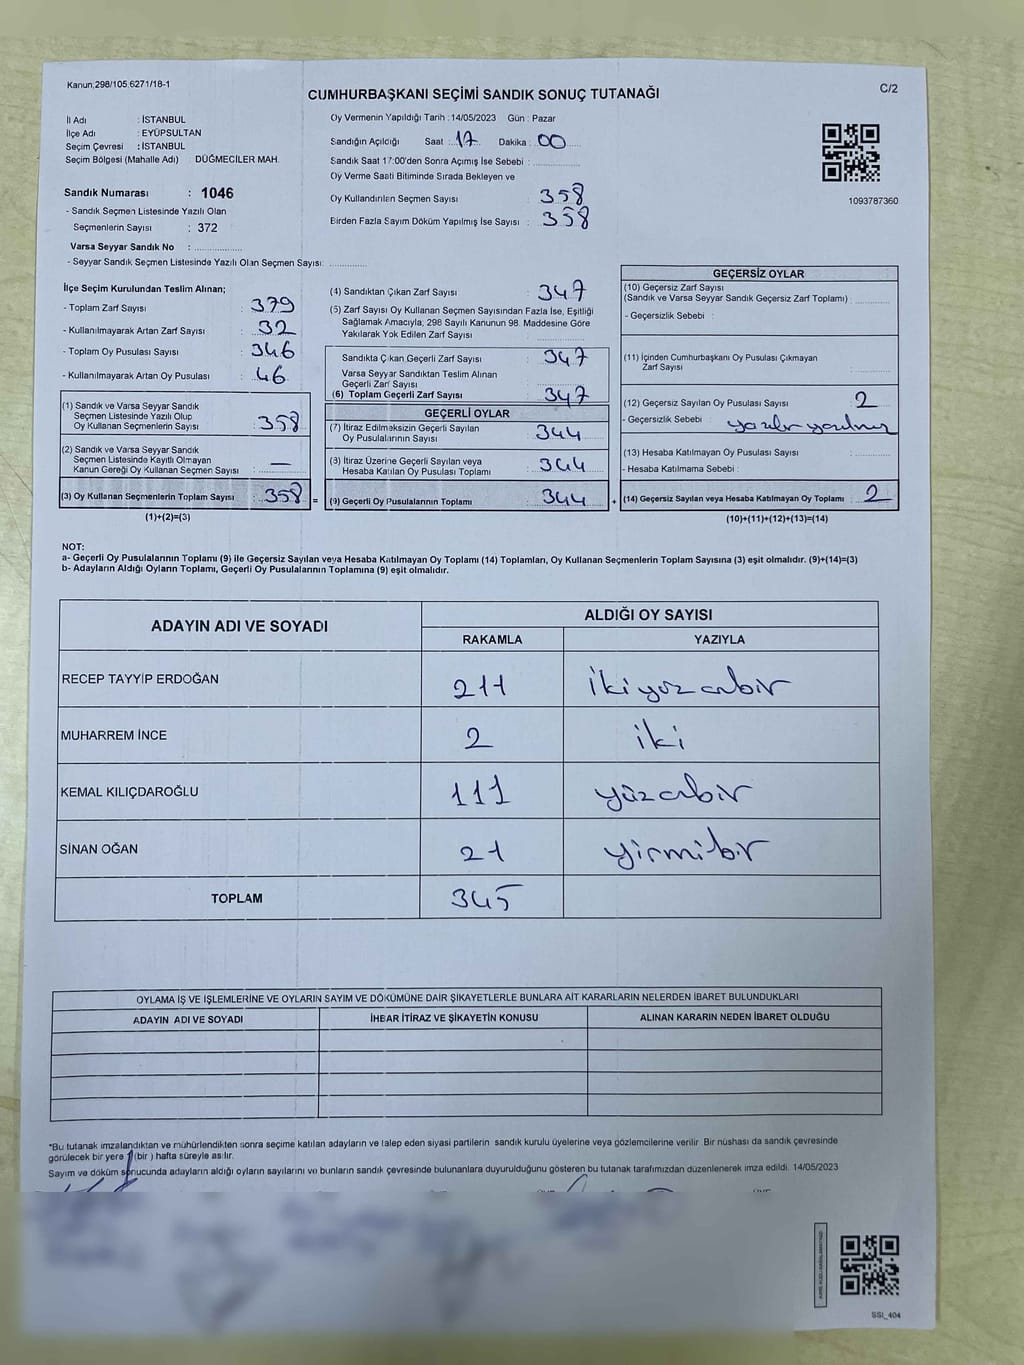 Kanun;298/105,6271/18-1
CUMHURBAŞKANI SEÇİMİ SANDIK SONUÇ TUTANAĞI
C/2
İl Adı : İSTANBUL
İlçe Adı : EYÜPSULTAN
Seçim Çevresi : İSTANBUL
Seçim Bölgesi (Mahalle Adı) : DÜĞMECİLER MAH.
Sandık Numarası : 1046
- Sandık Seçmen Listesinde Yazılı Olan
Seçmenlerin Sayısı : 372
Varsa Seyyar Sandık No : ................
- Seyyar Sandık Seçmen Listesinde Yazılı Olan Seçmen Sayısı: .............
Oy Vermenin Yapıldığı Tarih : 14/05/2023 Gün : Pazar
Sandığın Açıldığı Saat : 17 Dakika : 00
Sandık Saat 17:00'den Sonra Açımış İse Sebebi : ................
Oy Verme Saati Bitiminde Sırada Bekleyen ve
Oy Kullandırılan Seçmen Sayısı : 358
Birden Fazla Sayım Döküm Yapılmış İse Sayısı : 358
1093787360
İlçe Seçim Kurulundan Teslim Alınan;
- Toplam Zarf Sayısı : 379
- Kullanılmayarak Artan Zarf Sayısı : 32
- Toplam Oy Pusulası Sayısı : 346
- Kullanılmayarak Artan Oy Pusulası : 46
(1) Sandık ve Varsa Seyyar Sandık
Seçmen Listesinde Yazılı Olup
Oy Kullanan Seçmenlerin Sayısı : 358
(2) Sandık ve Varsa Seyyar Sandık
Seçmen Listesinde Kayıtlı Olmayan
Kanun Gereği Oy Kullanan Seçmen Sayısı : —
(3) Oy Kullanan Seçmenlerin Toplam Sayısı : 358 =
(1)+(2)=(3)
(4) Sandıktan Çıkan Zarf Sayısı : 347
(5) Zarf Sayısı Oy Kullanan Seçmen Sayısından Fazla İse, Eşitliği
Sağlamak Amacıyla, 298 Sayılı Kanunun 98. Maddesine Göre
Yakılarak Yok Edilen Zarf Sayısı
Sandıkta Çıkan Geçerli Zarf Sayısı : 347
Varsa Seyyar Sandıktan Teslim Alınan
Geçerli Zarf Sayısı
(6) Toplam Geçerli Zarf Sayısı : 347
GEÇERLİ OYLAR
(7) İtiraz Edilmeksizin Geçerli Sayılan
Oy Pusulalarının Sayısı : 344
(3) İtiraz Üzerine Geçerli Sayılan veya
Hesaba Katılan Oy Pusulası Toplamı : 344
(9) Geçerli Oy Pusulalarının Toplamı : 344 +
GEÇERSİZ OYLAR
(10) Geçersiz Zarf Sayısı
(Sandık ve Varsa Seyyar Sandık Geçersiz Zarf Toplamı) :
- Geçersizlik Sebebi :
(11) İçinden Cumhurbaşkanı Oy Pusulası Çıkmayan
Zarf Sayısı :
(12) Geçersiz Sayılan Oy Pusulası Sayısı : 2
- Geçersizlik Sebebi :
(13) Hesaba Katılmayan Oy Pusulası Sayısı :
- Hesaba Katılmama Sebebi :
(14) Geçersiz Sayılan veya Hesaba Katılmayan Oy Toplamı : 2
(10)+(11)+(12)+(13)=(14)
NOT:
a- Geçerli Oy Pusulalarının Toplamı (9) ile Geçersiz Sayılan veya Hesaba Katılmayan Oy Toplamı (14) Toplamları, Oy Kullanan Seçmenlerin Toplam Sayısına (3) eşit olmalıdır. (9)+(14)=(3)
b- Adayların Aldığı Oyların Toplamı, Geçerli Oy Pusulalarının Toplamına (9) eşit olmalıdır.
ADAYIN ADI VE SOYADI
ALDIĞI OY SAYISI
RAKAMLA YAZIYLA
RECEP TAYYİP ERDOĞAN 211 İkiyüzonbir
MUHARREM İNCE 2 iki
KEMAL KILIÇDAROĞLU 111 yüzonbir
SİNAN OĞAN 21 yirmibir
TOPLAM 345
OYLAMA İŞ VE İŞLEMLERİNE VE OYLARIN SAYIM VE DÖKÜMÜNE DAİR ŞİKAYETLERLE BUNLARA AİT KARARLARIN NELERDEN İBARET BULUNDUKLARI
ADAYIN ADI VE SOYADI İHBAR İTİRAZ VE ŞİKAYETİN KONUSU ALINAN KARARIN NEDEN İBARET OLDUĞU
*Bu tutanak imzalandıktan ve mühürlendikten sonra seçime katılan adayların ve talep eden siyasi partilerin sandık kurulu üyelerine veya gözlemcilerine verilir. Bir nüshası da sandık çevresinde
görülecek bir yere 1 (bir ) hafta süreyle asılır.
Sayım ve döküm sonucunda adayların aldığı oyların sayılarını ve bunların sandık çevresinde bulunanlara duyurulduğunu gösteren bu tutanak tarafımızdan düzenlenerek imza edildi. 14/05/2023
SSI_404